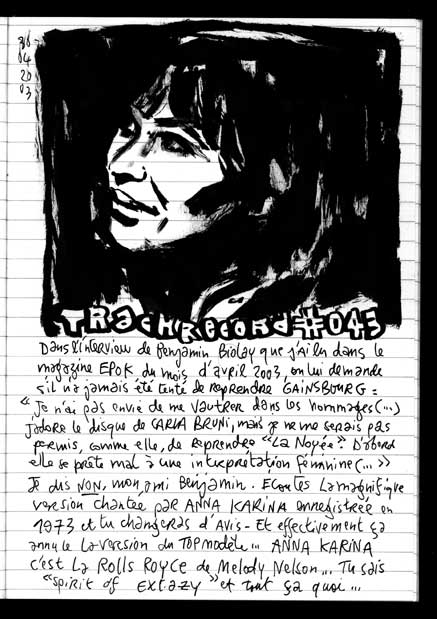 30
04
20
03
TRackRecord#045
Dans l'interview de Benjamin Biolay que j'ai lu dans le
magazine EPOK du mois d'avril 2003, on lui demande
s'il n'a jamais été tenté de reprendre GAINSBOURG =
"Je n'ai pas envie de me vautrer dans les hommages (...)
J'adore le disque de CARLA BRUNI, mais je ne me serais pas
permis, comme elle, de reprendre "La Noyée". D'abord
elle se prête mal à une interprétation féminine (... >>
Je dis NON, mon ami Benjamin. Ecoutes la magnifique
version chantée par ANNA KARINA enregistrée en
1973 et tu changeras d'avis - Et effectivement ça
annule la version du TOP modèle... ANNA KARINA
c'est La Rolls Royce de Melody Nelson... Tu sais
"spirit of extazy" et tout ça quoi...